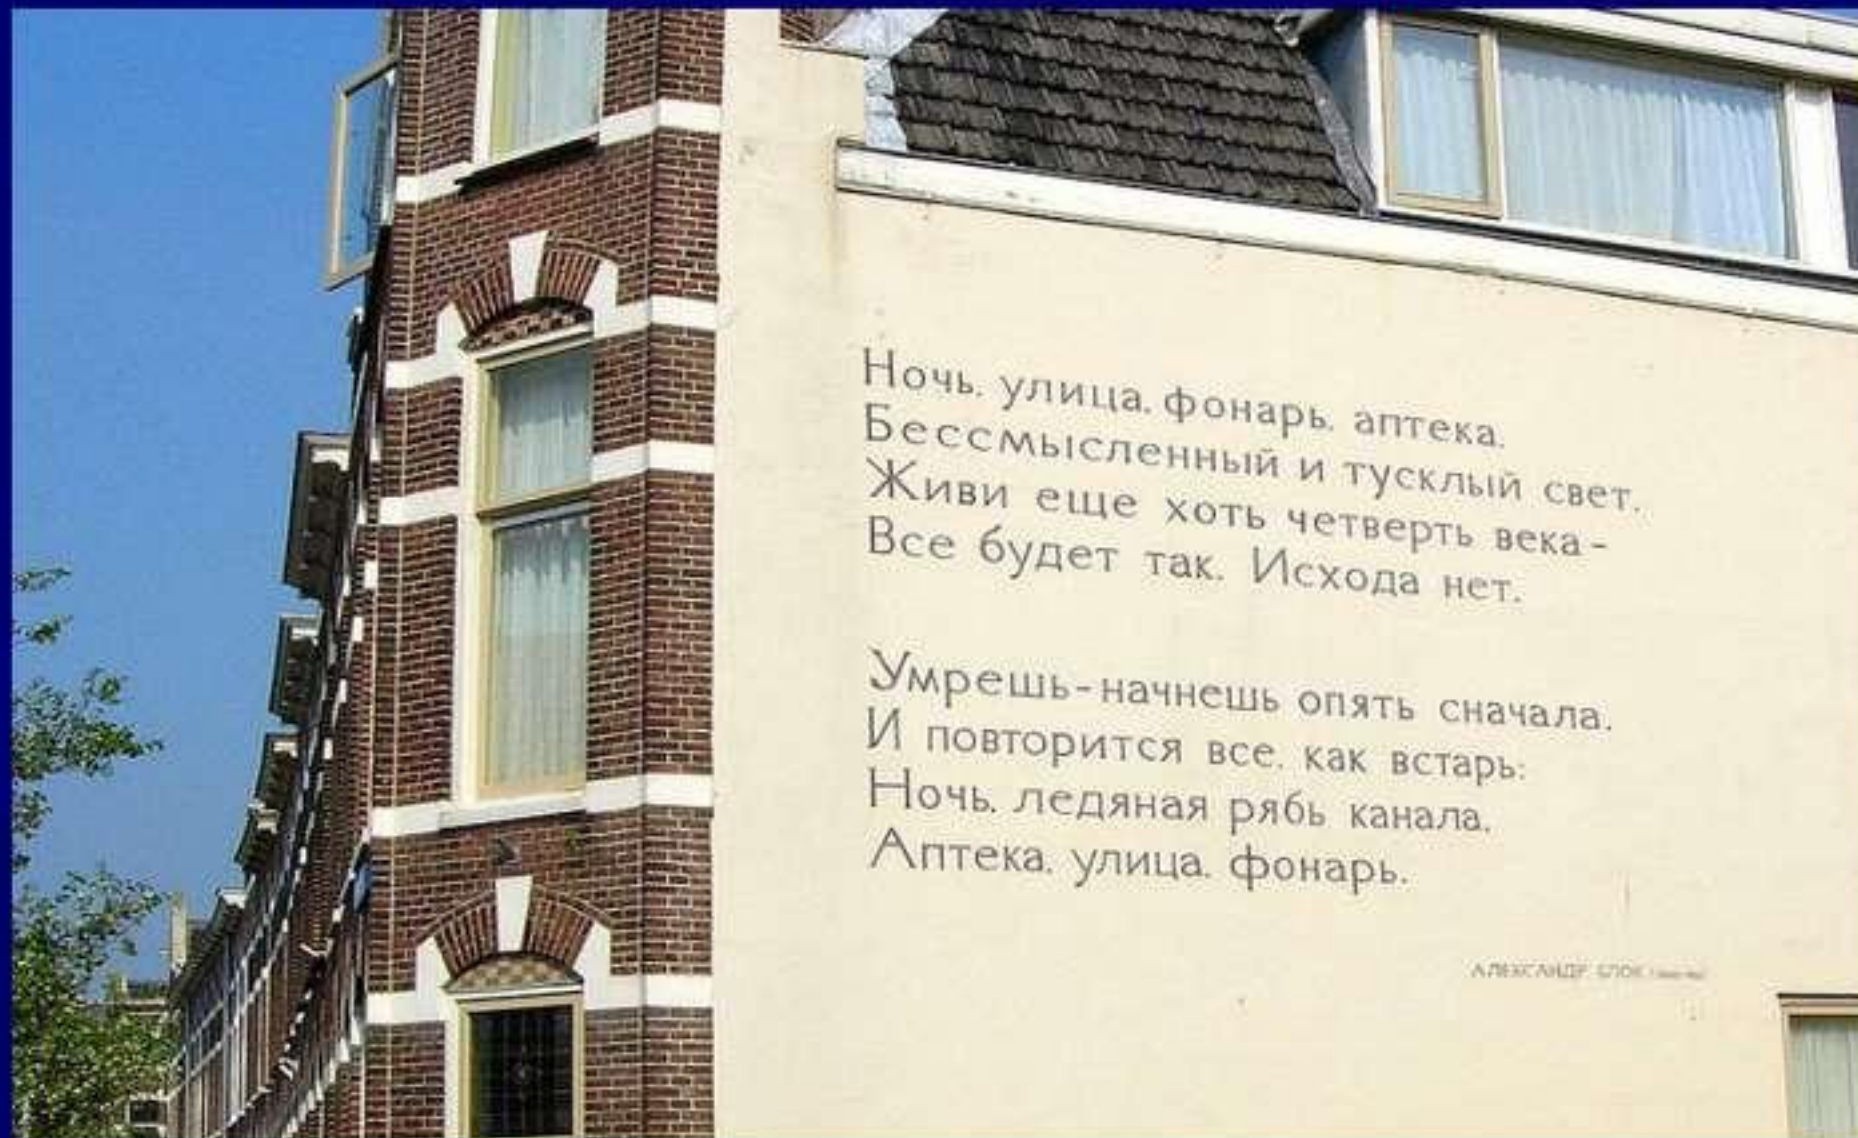 Ночь, улица, фонарь, аптека,
Бессмысленный и тусклый свет.
Живи еще хоть четверть века -
Все будет так. Исхода нет.
Умрешь - начнешь опять сначала,
И повторится все, как встарь:
Ночь, ледяная рябь канала,
Аптека, улица, фонарь.
АЛЕКСАНДР БЛОК